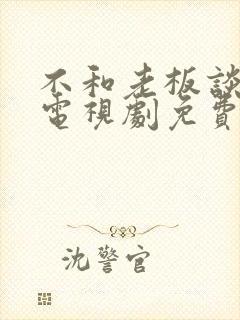 不和老板談
電視劇免費
沈警官